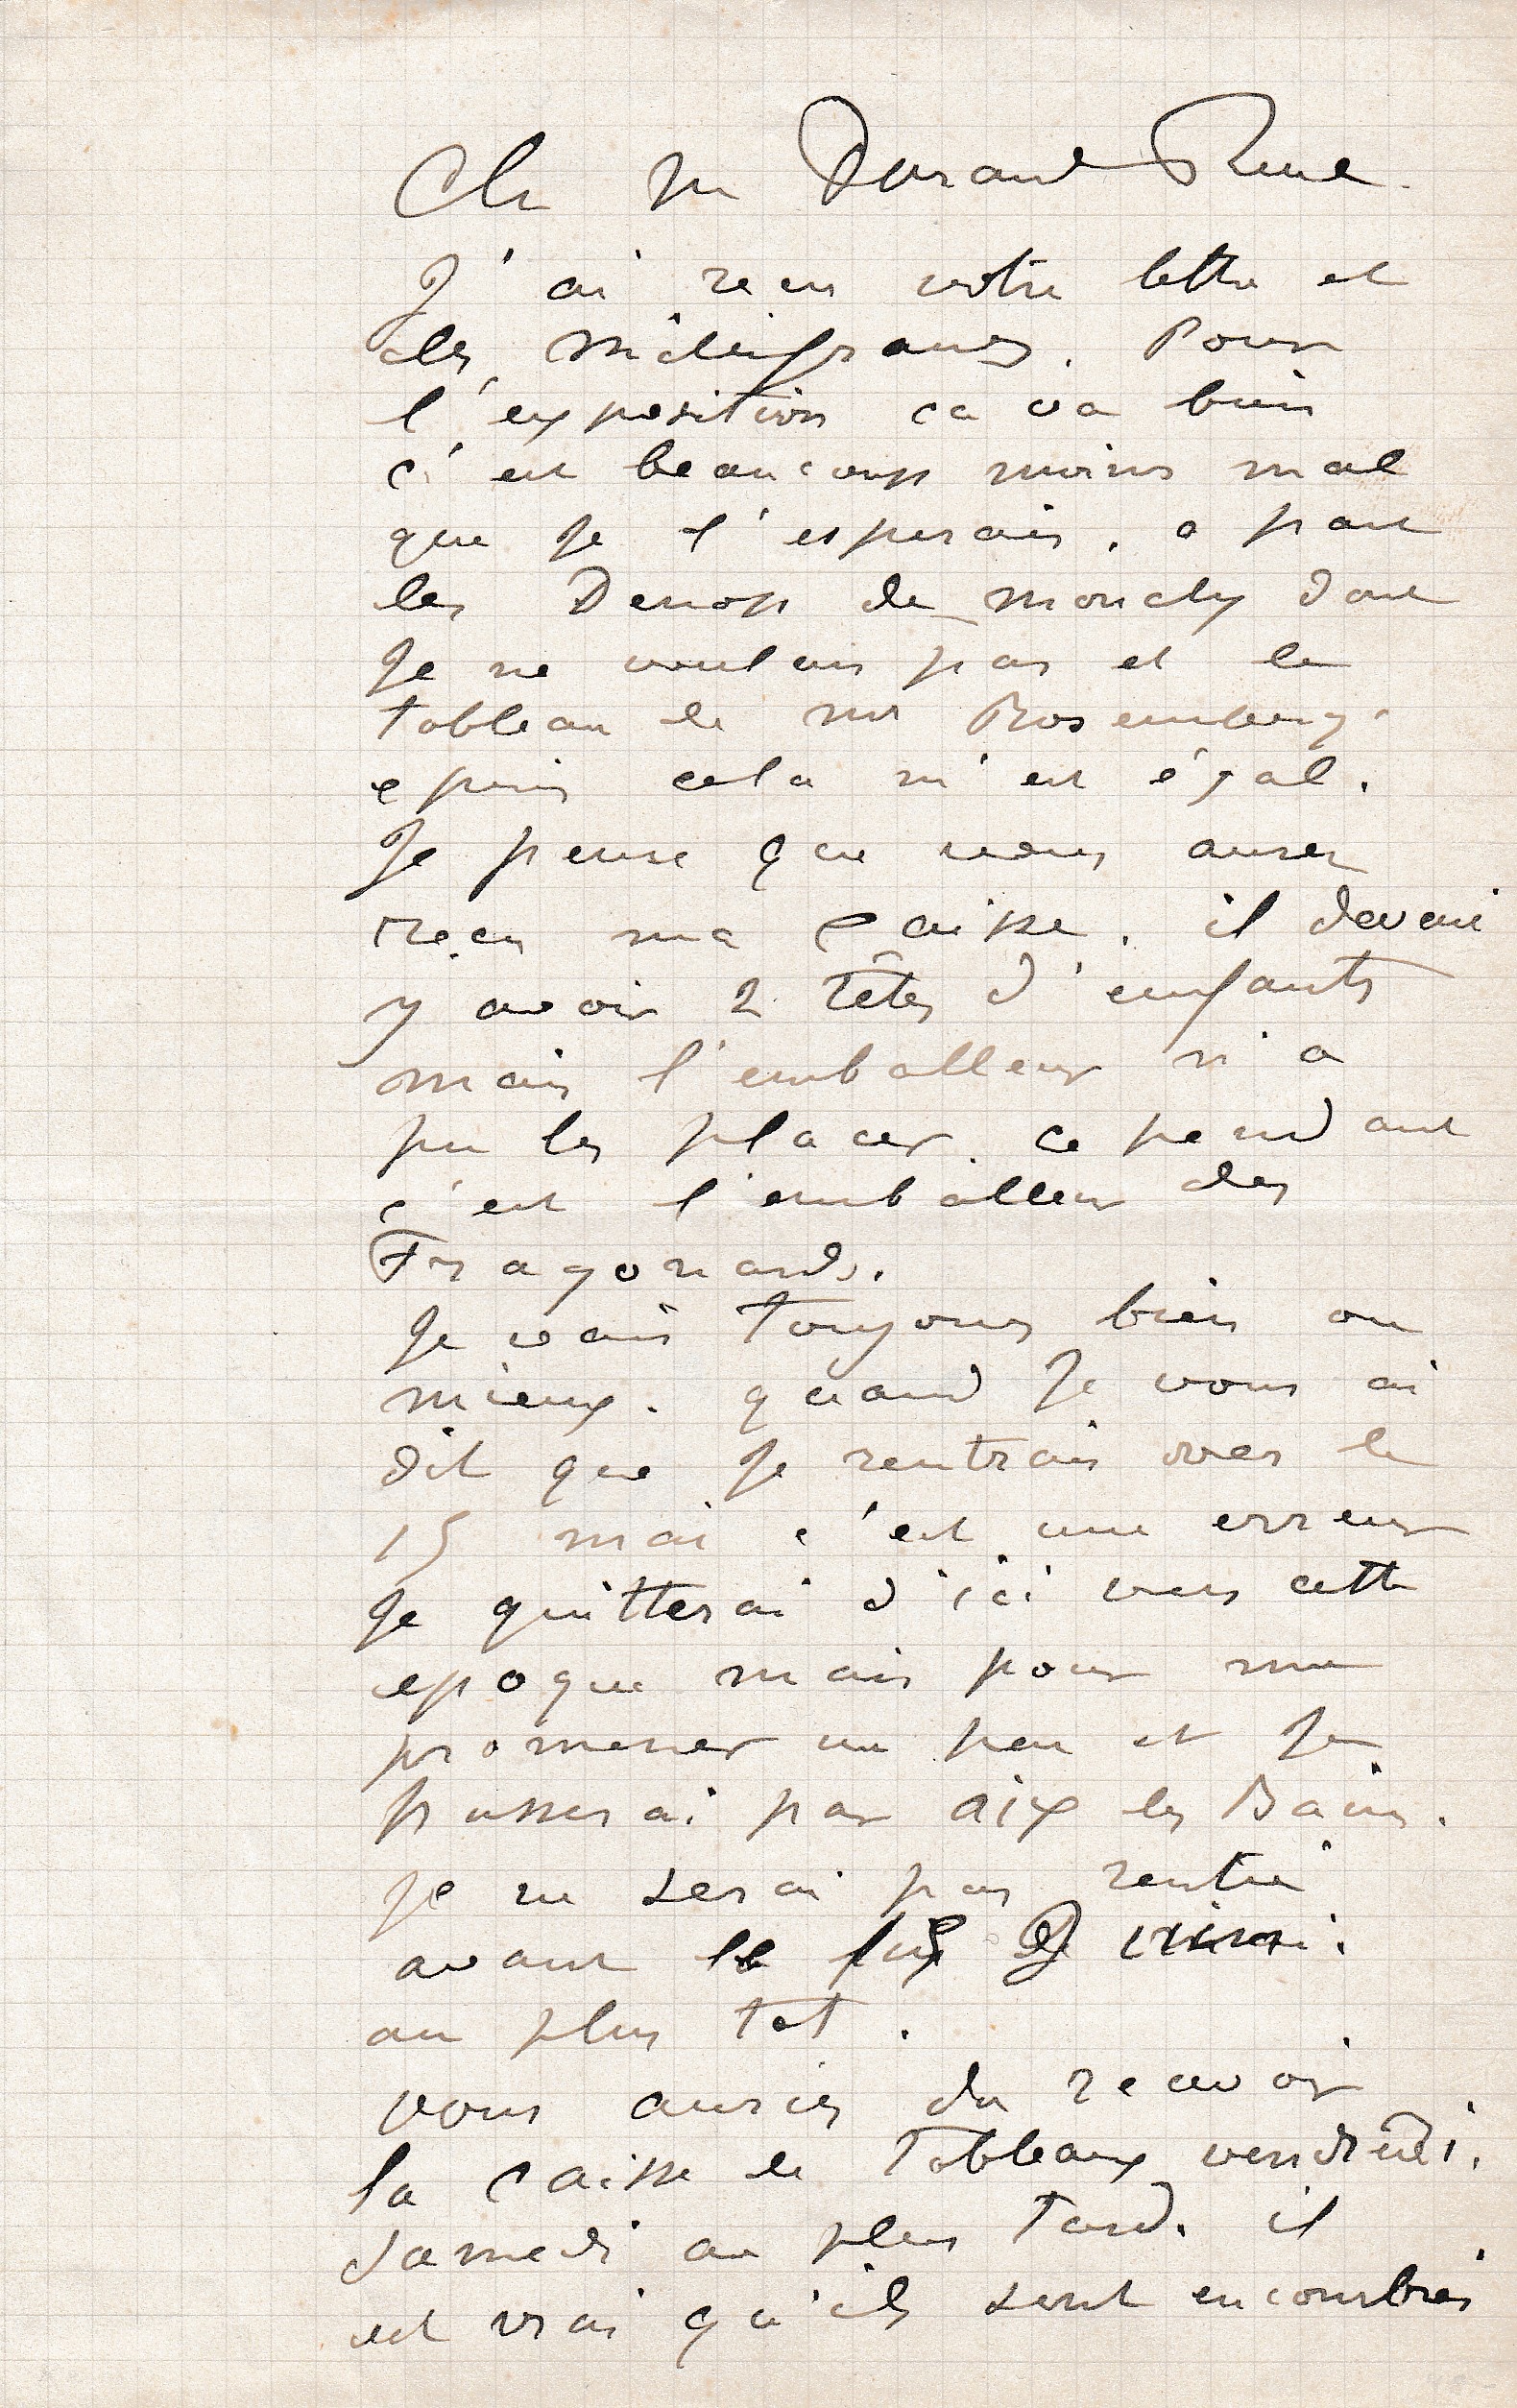 Cher M Durand Ruel.
J'ai recu votre lettre et
les mille francs. Pour
l'exposition ca va bien
c'est beaucoup moins mal
que je l'esperais. a part
les de dont
je ne voulais pas et le
tableau de mr Rosemberg.
e puis cela m'est égal.
Je pense que vous aurez
reçu ma caisse. il devait
y avoir 2 têtes d'enfants
mais l'emballeur n'a
pu les placer. cependant
c'est l'emballeur des
Fragonards.
Je vais toujours bien ou
mieux. quand je vous ai
dit que je rentrais vers le
15 mai c'est une erreur
je quitterai d'ici vers cette
epoque mais pour me
promener un peu et je
passerai par aix les Bains.
je ne serai pas rentré
avant le
au plus tot.
vous auriez du recevoir
la caisse de tableaux vendredi.
samedi au plus tard. il
est vrai qu'ils sont encombrés